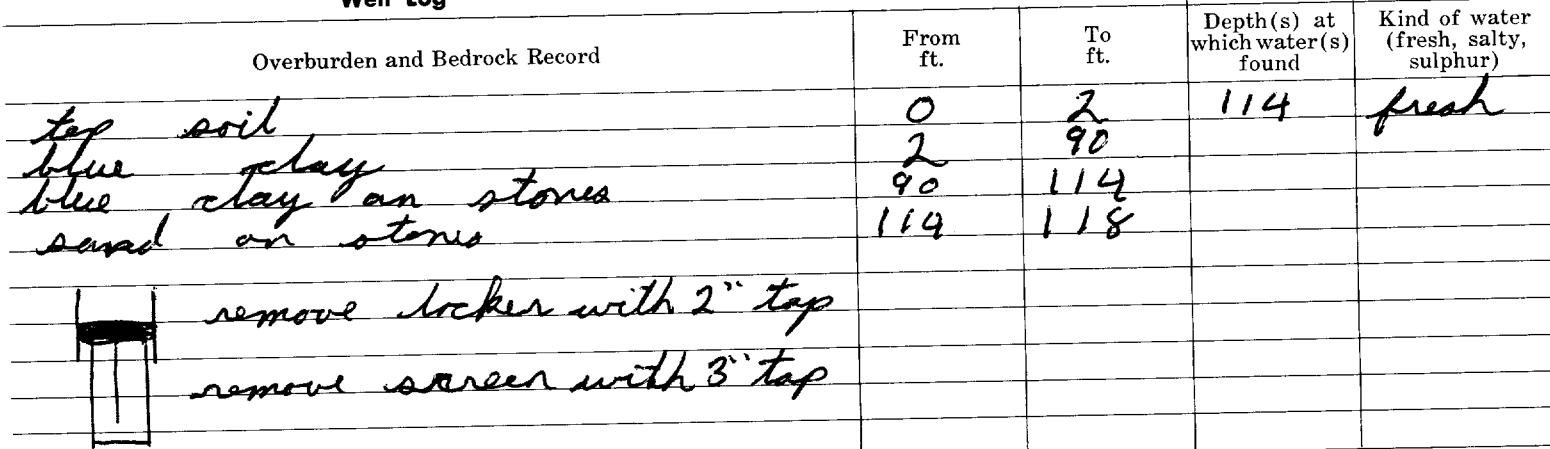 Well Log
Overburden and Bedrock Record From ft. To ft. Depth(s) at which water(s) found Kind of water (fresh, salty, sulphur)
top soil 0 2 114 fresh
blue clay 2 90
blue clay an stones 90 114
sand an stones 114 118
remove locker with 2" tap
remove screen with 3" tap